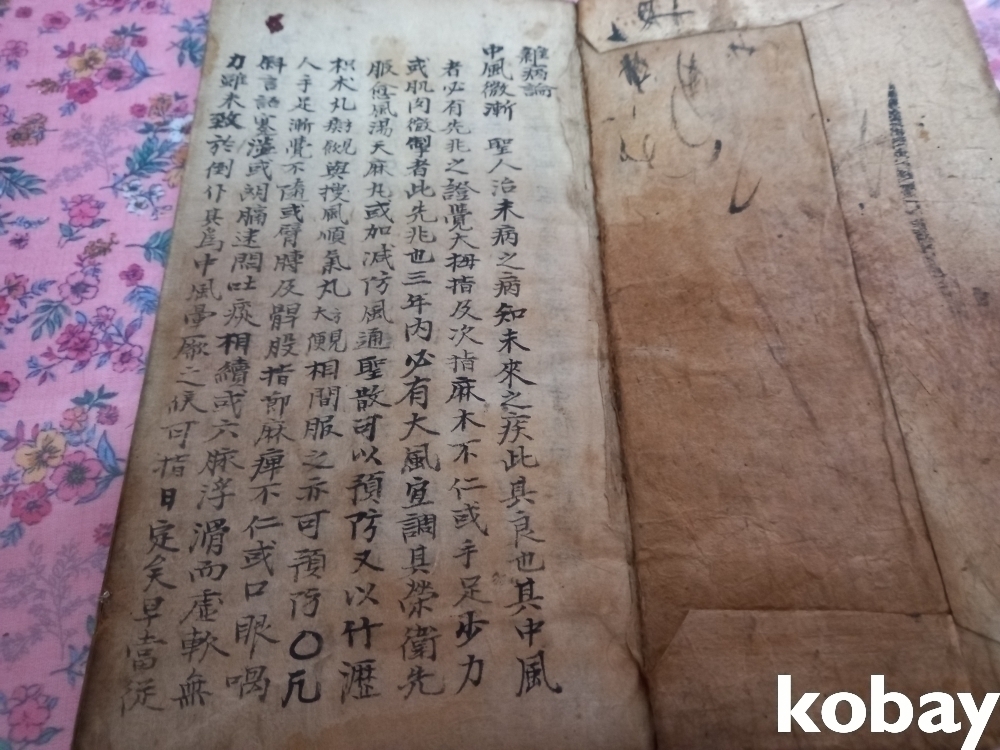 雜病論
中風微漸 聖人治未病之病知未來之疾此其良也其中風
者必有先兆之證覺大拇指及次指麻木不仁或手足步力
或肌肉微掣者此先兆也三年內必有大風宜調其榮衛先
服愈風湯天麻丸或加减防風通聖散可以預防又以竹瀝
枳朮丸與搜風順氣丸大便相間服之亦可預防〇凡
人手足漸覺不隨或臂膊及髀股指節麻痺不仁或口眼喎
斜言語蹇澁或胸膈迷悶吐痰相續或六脉浮滑而虛軟無
力雖未致於倒仆其爲中風暈厥之候可指日定矣早當從
kobay